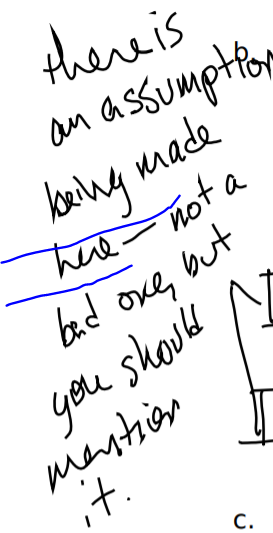 there is
b.
an assumption
being made
here — not a
bad one, but
you should
mention
it.
c.